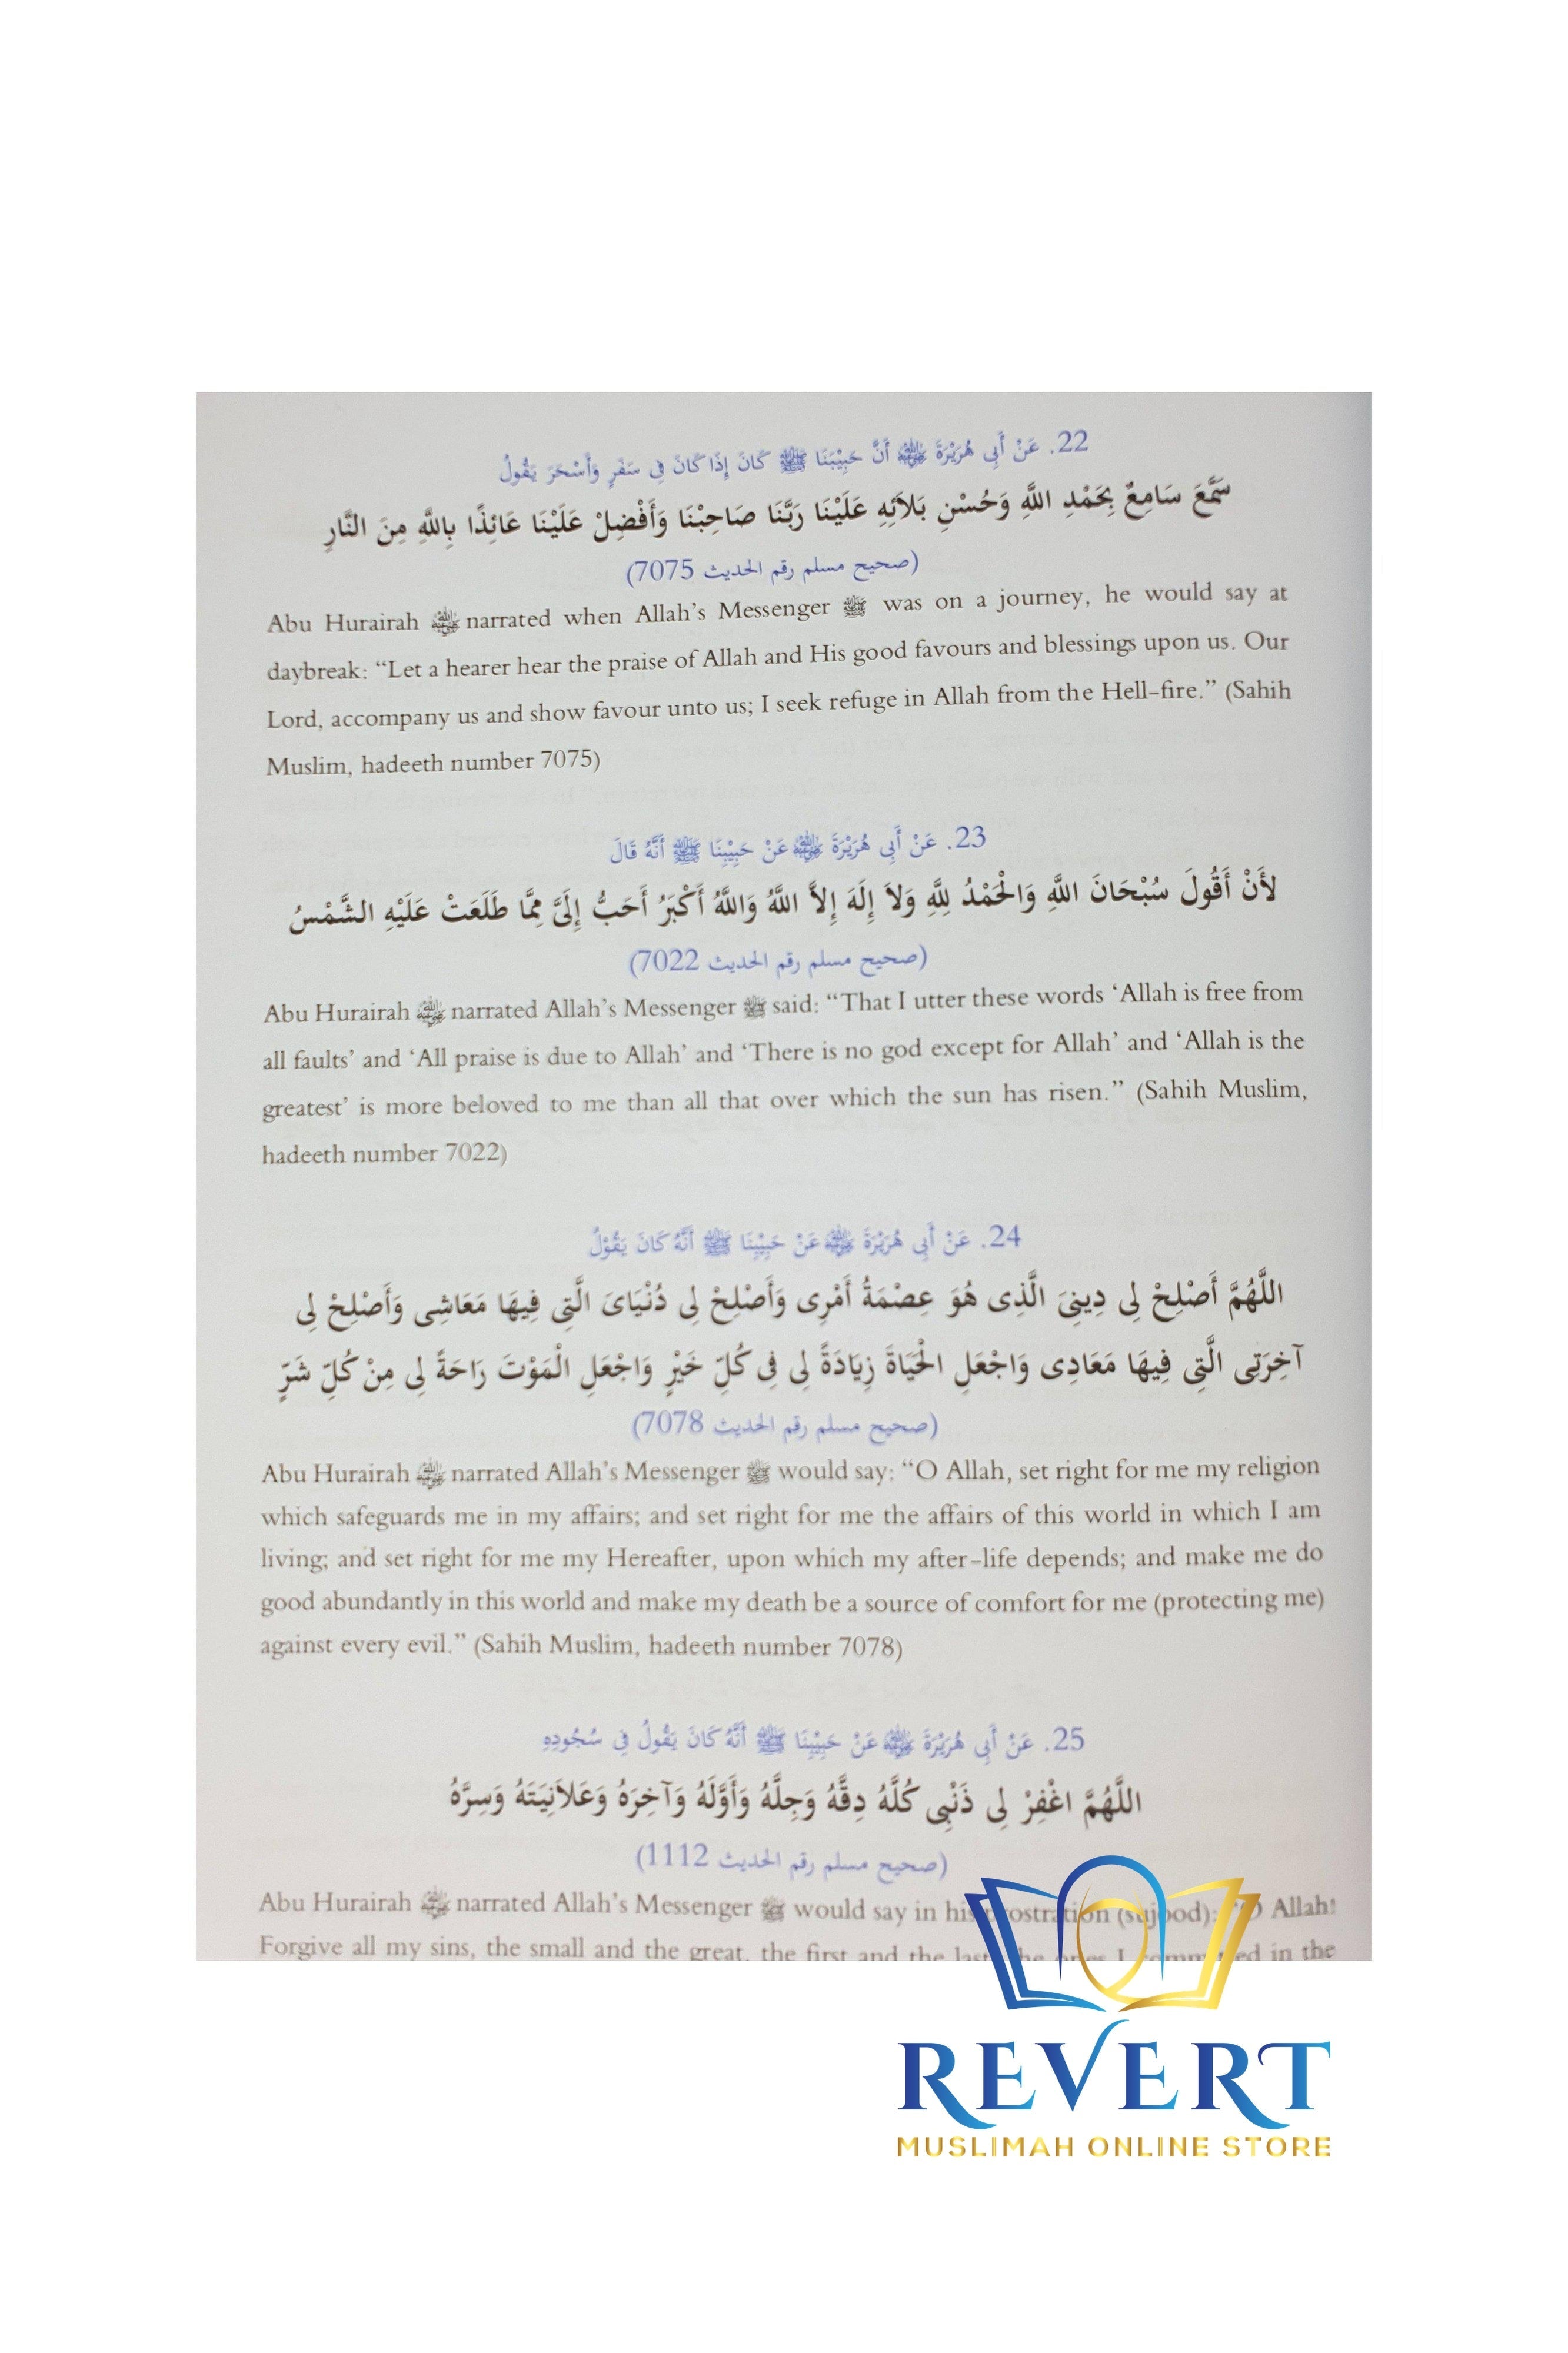 22. عَنْ أَبِى هُرَيْرَةَ ؓ أَنَّ حَبِيْبَنَا ﷺ كَانَ إِذَا كَانَ فِى سَفَرٍ وَأَسْحَرَ يَقُولُ
سَمَّعَ سَامِعٌ بِحَمْدِ اللَّهِ وَحُسْنِ بَلاَئِهِ عَلَيْنَا رَبَّنَا صَاحِبْنَا وَأَفْضِلْ عَلَيْنَا عَائِذًا بِاللَّهِ مِنَ النَّارِ
(صحيح مسلم رقم الحديث 7075)
Abu Hurairah ؓ narrated when Allah’s Messenger ﷺ was on a journey, he would say at
daybreak: “Let a hearer hear the praise of Allah and His good favours and blessings upon us. Our
Lord, accompany us and show favour unto us; I seek refuge in Allah from the Hell-fire.” (Sahih
Muslim, hadeeth number 7075)
23. عَنْ أَبِى هُرَيْرَةَ ؓ عَنْ حَبِيْبِنَا ﷺ أَنَّهُ قَالَ
لأَنْ أَقُولَ سُبْحَانَ اللَّهِ وَالْحَمْدُ لِلَّهِ وَلاَ إِلَهَ إِلاَّ اللَّهُ وَاللَّهُ أَكْبَرُ أَحَبُّ إِلَىَّ مِمَّا طَلَعَتْ عَلَيْهِ الشَّمْسُ
(صحيح مسلم رقم الحديث 7022)
Abu Hurairah ؓ narrated Allah’s Messenger ﷺ said: “That I utter these words ‘Allah is free from
all faults’ and ‘All praise is due to Allah’ and ‘There is no god except for Allah’ and ‘Allah is the
greatest’ is more beloved to me than all that over which the sun has risen.” (Sahih Muslim,
hadeeth number 7022)
24. عَنْ أَبِى هُرَيْرَةَ ؓ عَنْ حَبِيْبِنَا ﷺ أَنَّهُ كَانَ يَقُوْلُ
اللَّهُمَّ أَصْلِحْ لِى دِينِىَ الَّذِى هُوَ عِصْمَةُ أَمْرِى وَأَصْلِحْ لِى دُنْيَاىَ الَّتِى فِيهَا مَعَاشِى وَأَصْلِحْ لِى
آخِرَتِى الَّتِى فِيهَا مَعَادِى وَاجْعَلِ الْحَيَاةَ زِيَادَةً لِى فِى كُلِّ خَيْرٍ وَاجْعَلِ الْمَوْتَ رَاحَةً لِى مِنْ كُلِّ شَرٍّ
(صحيح مسلم رقم الحديث 7078)
Abu Hurairah ؓ narrated Allah’s Messenger ﷺ would say: “O Allah, set right for me my religion
which safeguards me in my affairs; and set right for me the affairs of this world in which I am
living; and set right for me my Hereafter, upon which my after-life depends; and make me do
good abundantly in this world and make my death be a source of comfort for me (protecting me)
against every evil.” (Sahih Muslim, hadeeth number 7078)
25. عَنْ أَبِى هُرَيْرَةَ ؓ عَنْ حَبِيْبِنَا ﷺ أَنَّهُ كَانَ يَقُولُ فِى سُجُودِهِ
اللَّهُمَّ اغْفِرْ لِى ذَنْبِى كُلَّهُ دِقَّهُ وَجِلَّهُ وَأَوَّلَهُ وَآخِرَهُ وَعَلاَنِيَتَهُ وَسِرَّهُ
(صحيح مسلم رقم الحديث 1112)
Abu Hurairah ؓ narrated Allah’s Messenger ﷺ would say in his prostration (sujood): “O Allah!
Forgive all my sins, the small and the great, the first and the last, the ones I committed in the
REVERT
MUSLIMAH ONLINE STORE